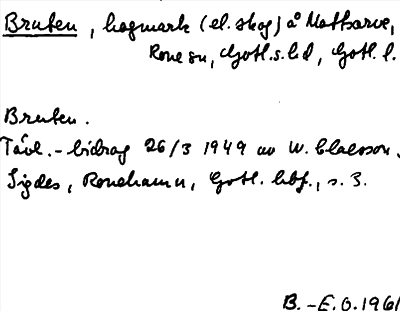 Bruten, hagmark (el. skog) å Mattsarve,
Rone sn, Gotl.s. hd, Gotl. l.
Bruten.
Tävl.-bidrag 26/3 1949 av W. Claesson.
Sigdes, Ronehamn, Gotl. hbf., s. 3.
B.-E.O.1961